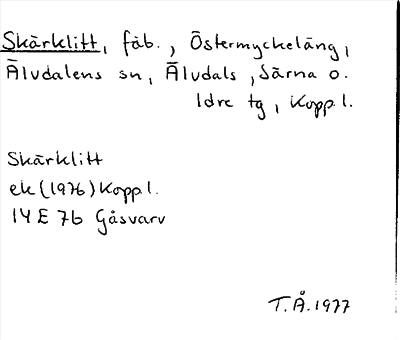 Skärklitt, fäb., Östermyckeläng,
Älvdalens sn, Älvdals, Särna o.
Idre tg, Kopp.l.
Skärklitt
ek (1976) Kopp.l.
14 E 7b Gåsvarv
T.Å. 1977